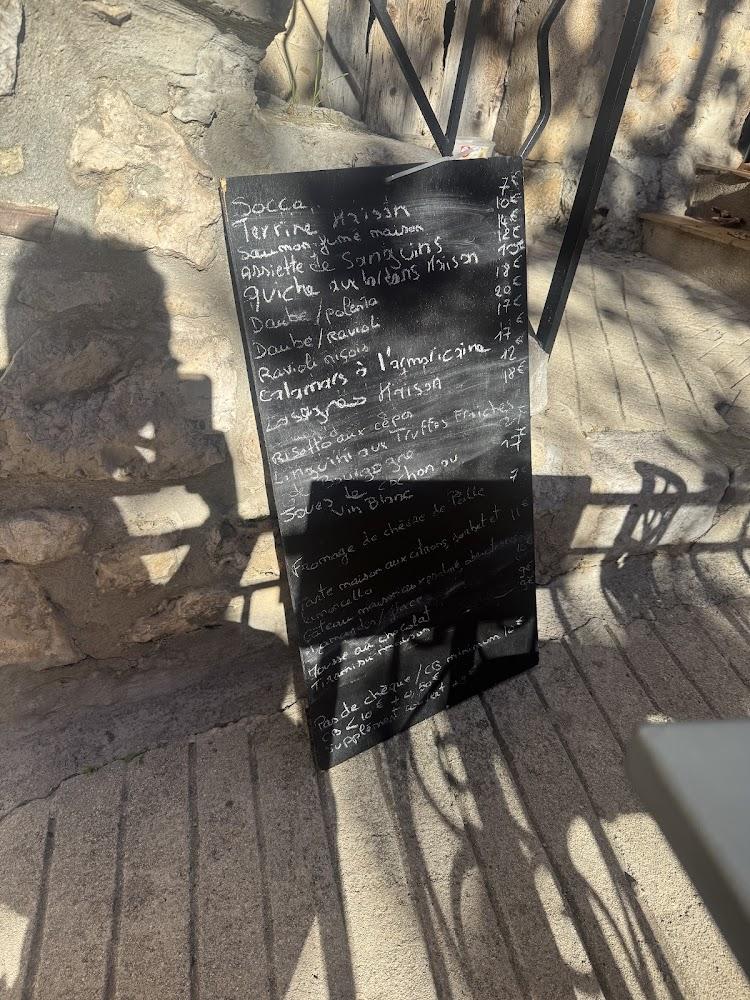 Socca 7€
Terrine Maison 10€
Saumon fumé maison 14€
assiette de Sanguins
quiche aux lardons Maison
Daube/polenta 18€
Daube/Ravioli 20€
Ravioli niçois 17€
Calamars à l'armoricaine 17
Lasagnes Maison 12
Risotto aux cèpes 18€
Linguini aux Truffes Fraîches
de Bourgogne
Joues de cochon au 17
Vin Blanc
Fromage de chèvre de Peille 7
Tarte maison aux citrons, sorbet et
limoncello
Gâteau maison
Mousse au chocolat
Tiramisu maison
Pas de chèque/CB minimum 10€
CB < 10€ +
supplément